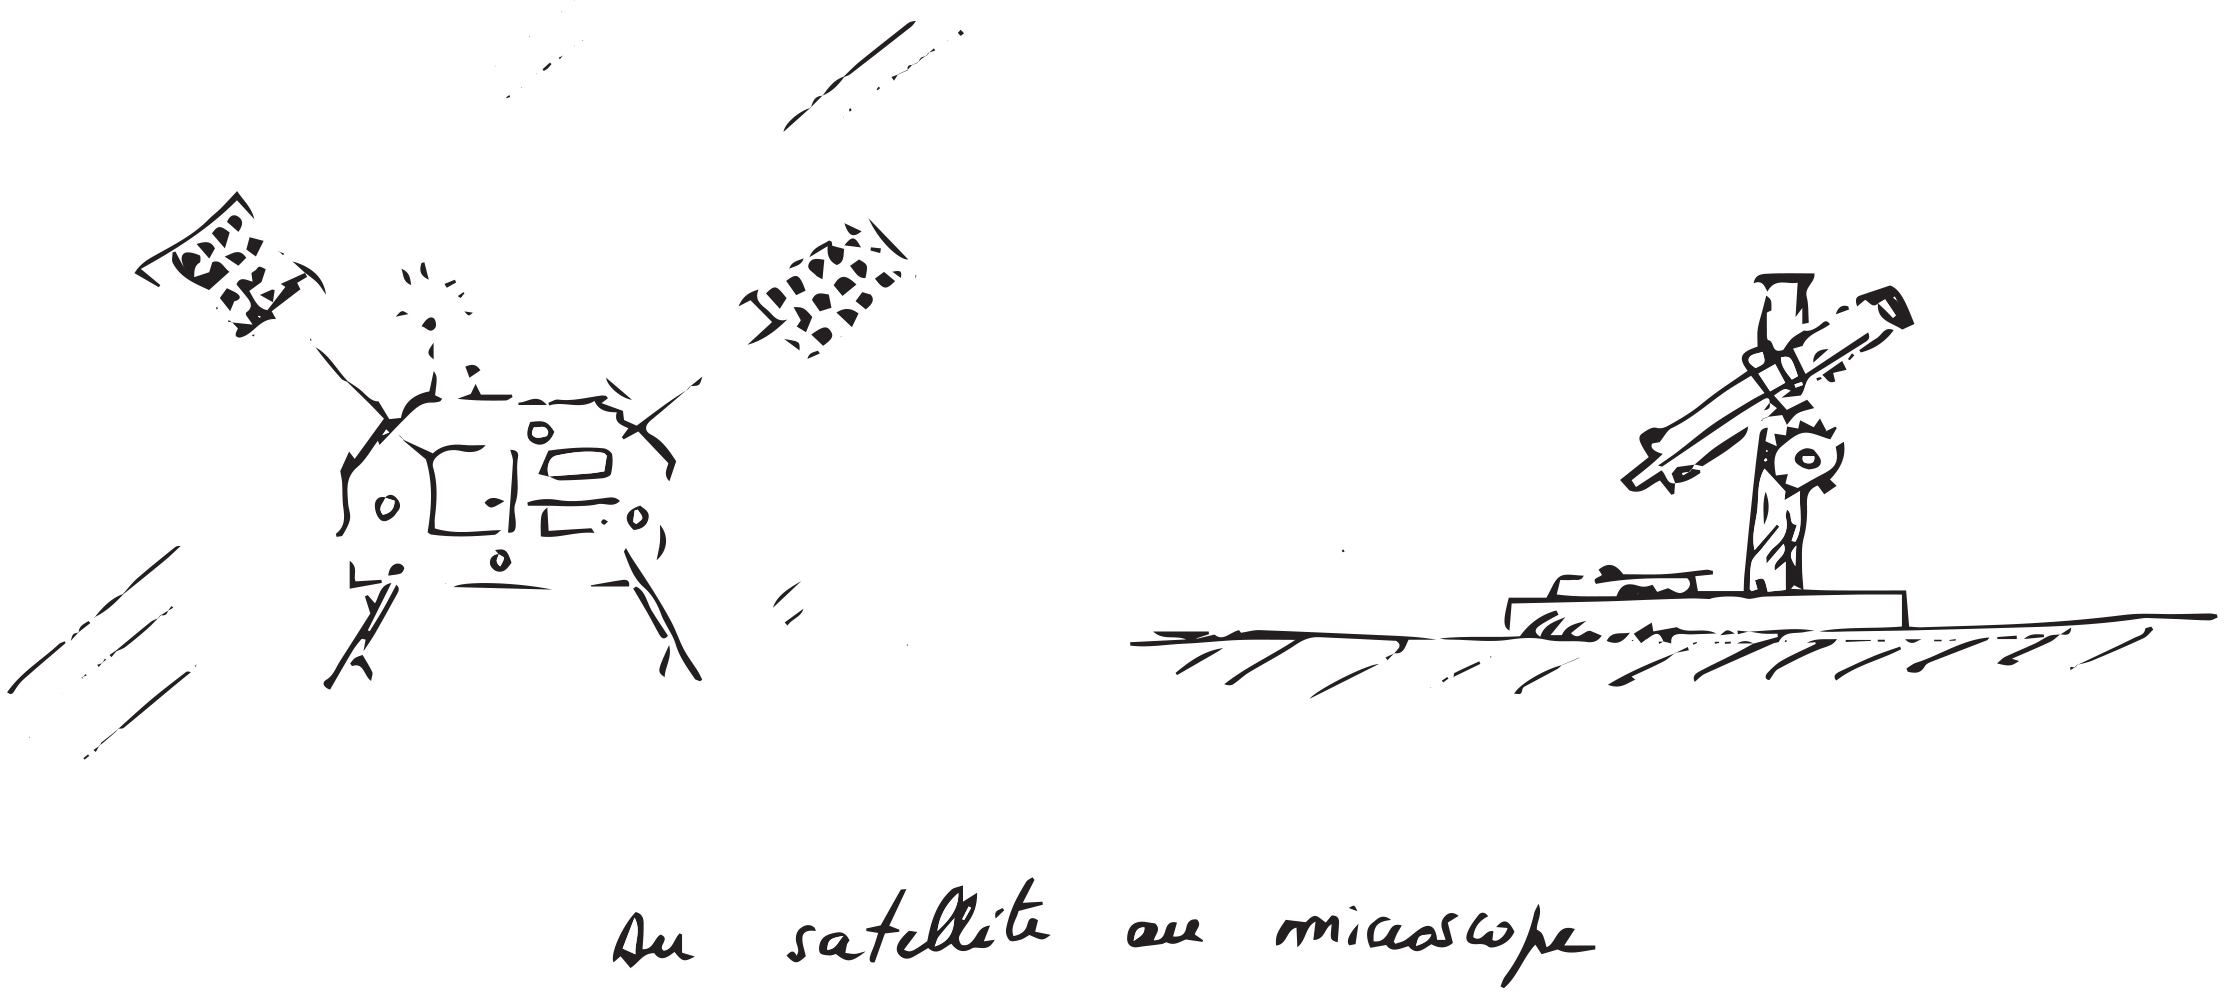 Du satellite au microscope